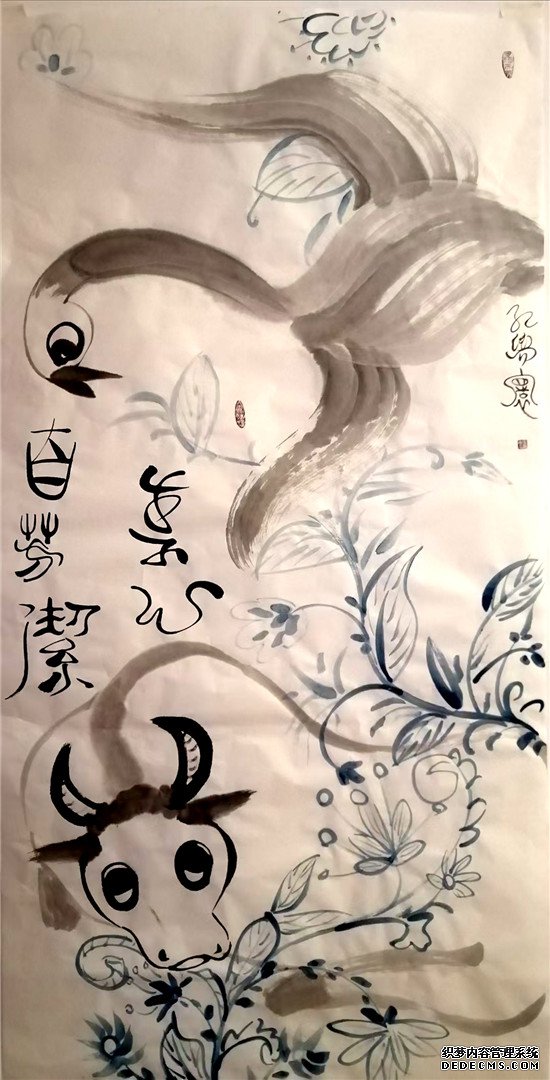 素心
自芬潔
织梦内容管理系统
DEDECMS.COM